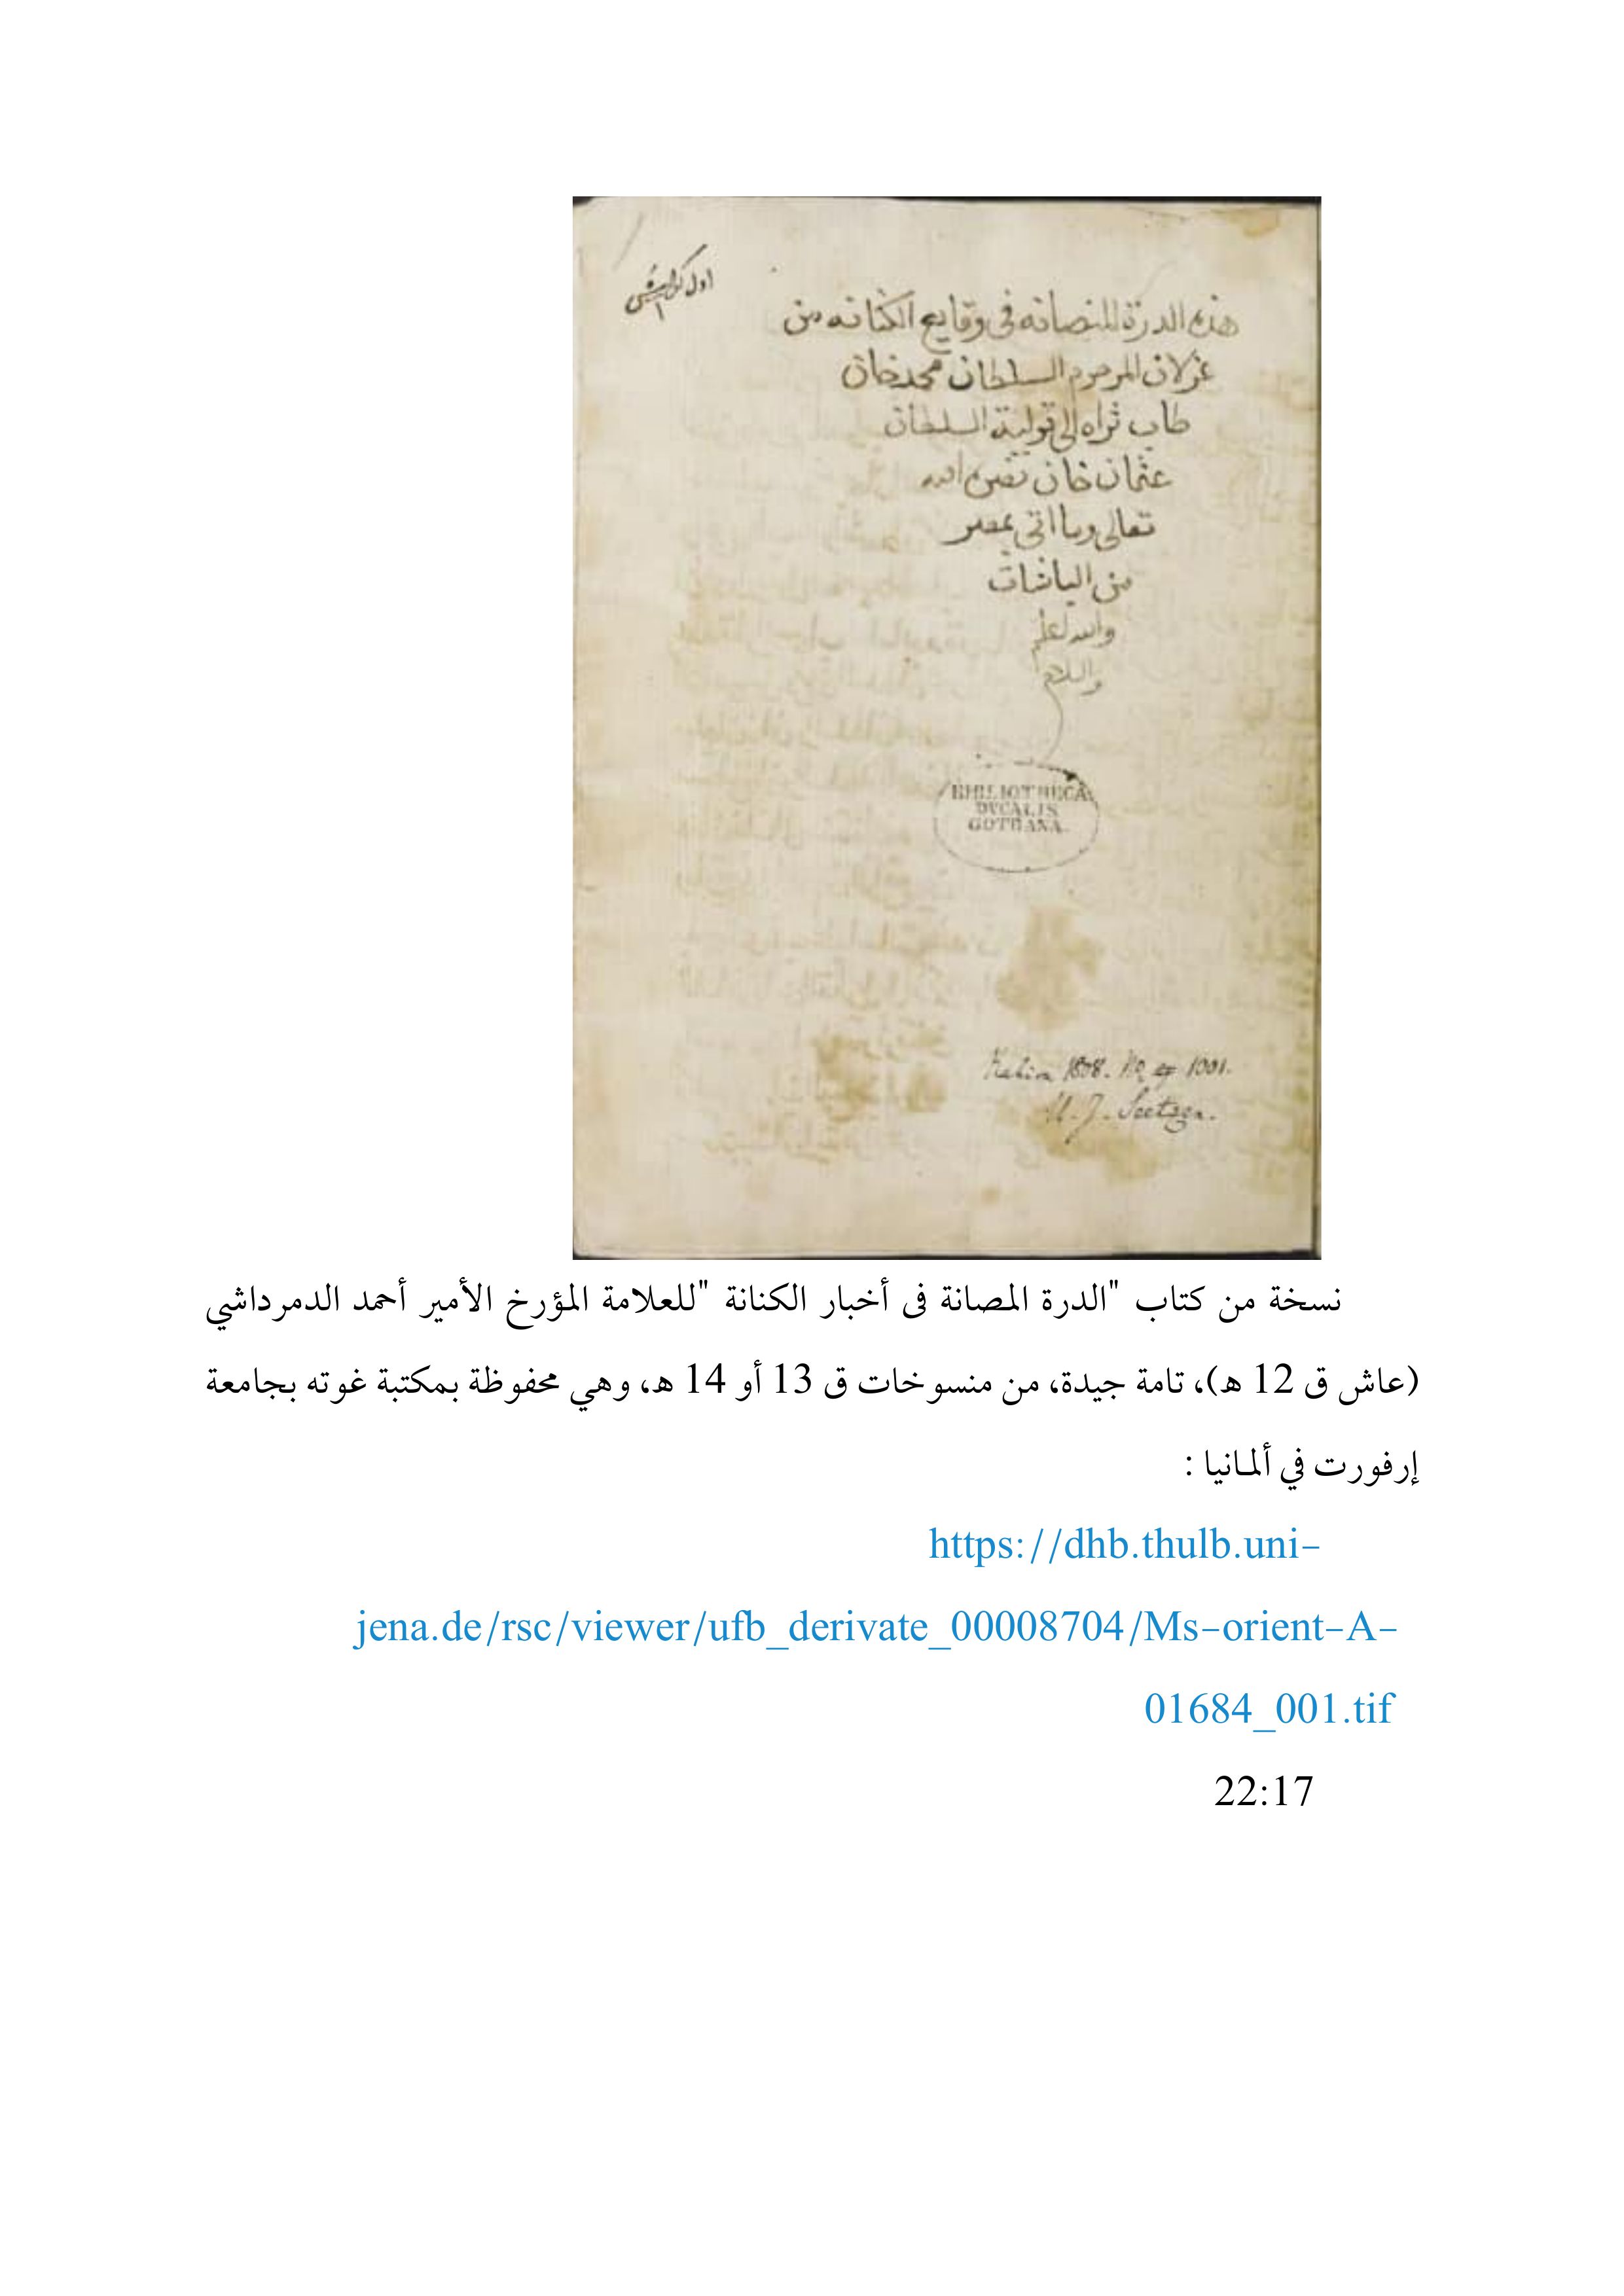 اول كراس
١
هذه الدرة المنصانه فى وقايع الكنانه من
عزلان المرحوم السلطان محمد خان
طاب ثراه الى تولية السلطان
عثمان خان نصره الله
تعالى وما اتى بمصر
من الباشات
والله اعلم
والسلام
BIBLIOTHECA
DVCALIS
GOTHANA.
Kahira 1808. No 1001.
U. J. Seetzen.
نسخة من كتاب "الدرة المصانة فى أخبار الكنانة "للعلامة المؤرخ الأمير أحمد الدمرداشي
(عاش ق 12 هـ)، تامة جيدة، من منسوخات ق 13 أو 14 هـ، وهي محفوظة بمكتبة غوته بجامعة
إرفورت في ألمانيا :
https://dhb.thulb.uni-
jena.de/rsc/viewer/ufb_derivate_00008704/Ms-orient-A-
01684_001.tif
22:17